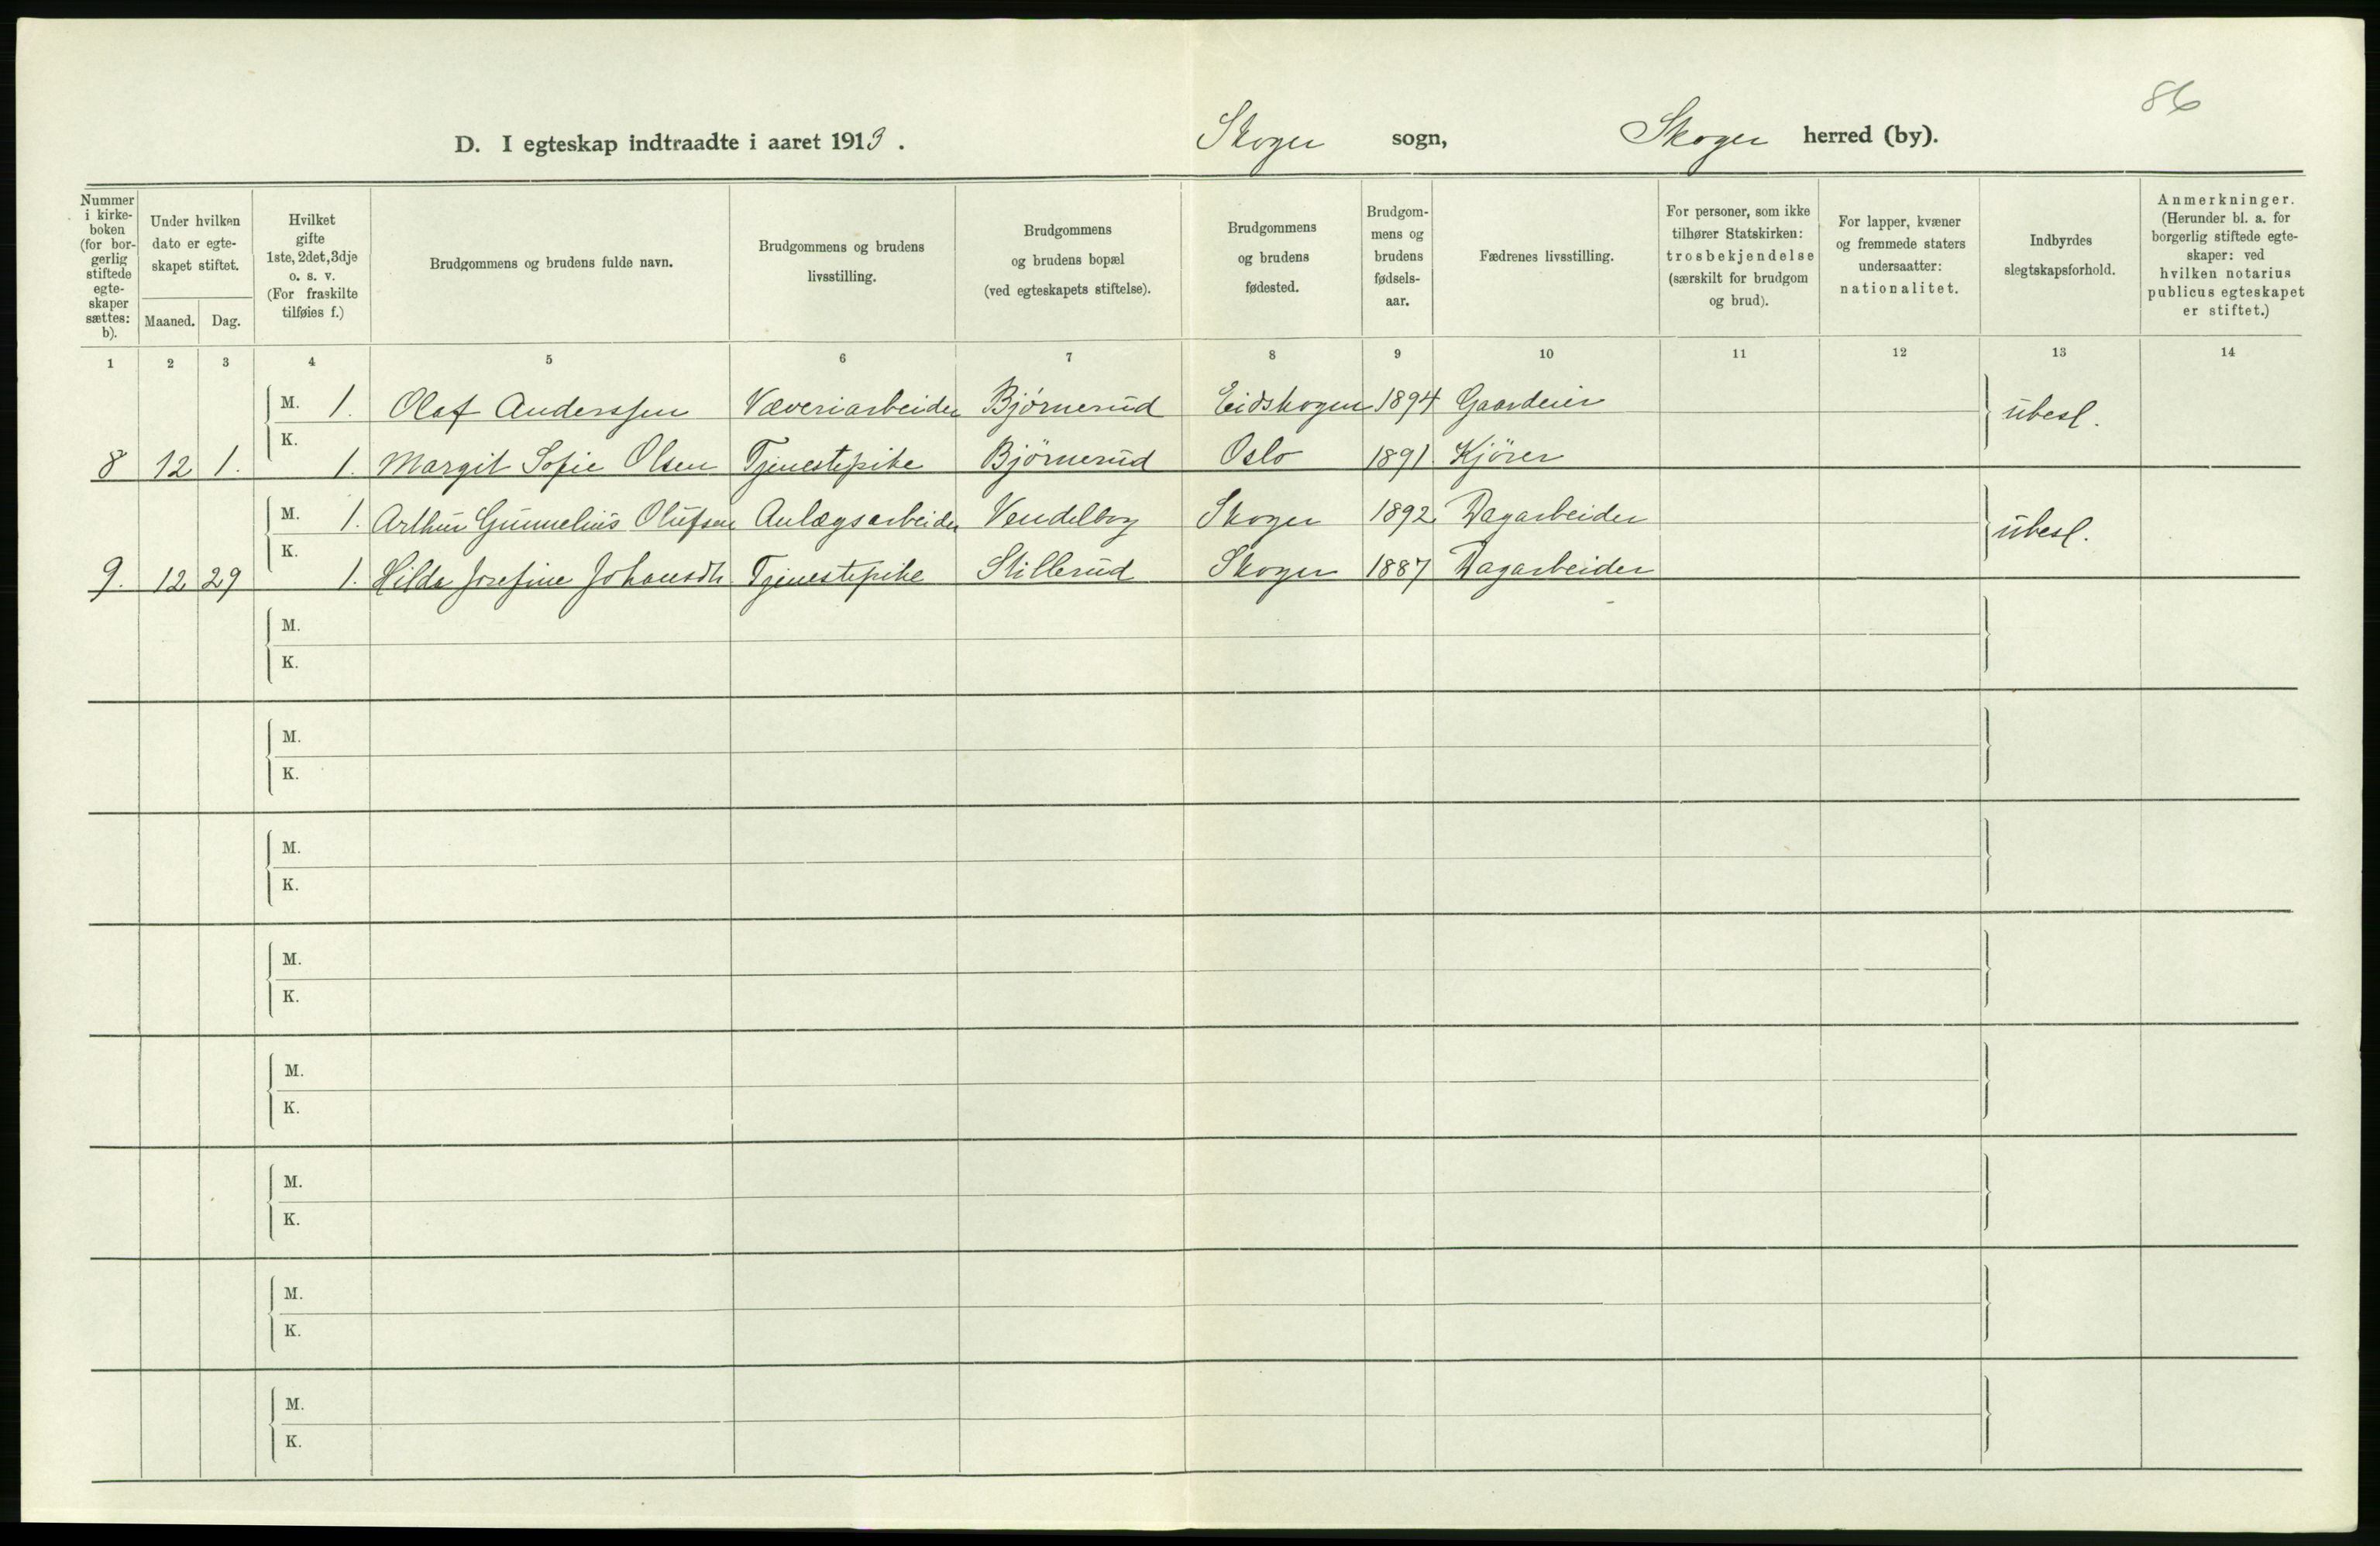 86
D. I egteskap indtraadte i aaret 1913. Skoger sogn, Skoger herred (by).
Nummer i kirke-boken (for bor-gerlig stiftede egte-skaper sættes: b).
Under hvilken dato er egte-skapet stiftet.
Maaned. Dag.
Hvilket gifte 1ste, 2det, 3dje o. s. v. (For fraskilte tilføies f.)
Brudgommens og brudens fulde navn.
Brudgommens og brudens livsstilling.
Brudgommens og brudens bopæl (ved egteskapets stiftelse).
Brudgommens og brudens fødested.
Brudgom-mens og brudens fødsels-aar.
Fædrenes livsstilling.
For personer, som ikke tilhører Statskirken: trosbekjendelse (særskilt for brudgom og brud).
For lapper, kvæner og fremmede staters undersaatter: nationalitet.
Indbyrdes slegtskapsforhold.
Anmerkninger. (Herunder bl. a. for borgerlig stiftede egte-skaper: ved hvilken notarius publicus egteskapet er stiftet.)
1 2 3 4 5 6 7 8 9 10 11 12 13 14
M. 1. Olaf Anderssen Væveriarbeider Bjørnerud Eidskogen 1894 Gaardeier ubesl.
8 12 1. K. 1. Margit Sofie Olsen Tjenestepike Bjørnerud Oslo 1891. Kjører
M. 1. Arthur Gunnelius Olufsen Anlægsarbeider Vendelborg Skoger 1892. Dagarbeider ubesl.
9. 12 29 K. 1. Hilda Josefine Johansdtr Tjenestepike Stillerud Skoger 1887 Dagarbeider
M.
K.
M.
K.
M.
K.
M.
K.
M.
K.
M.
K.
M.
K.
M.
K.